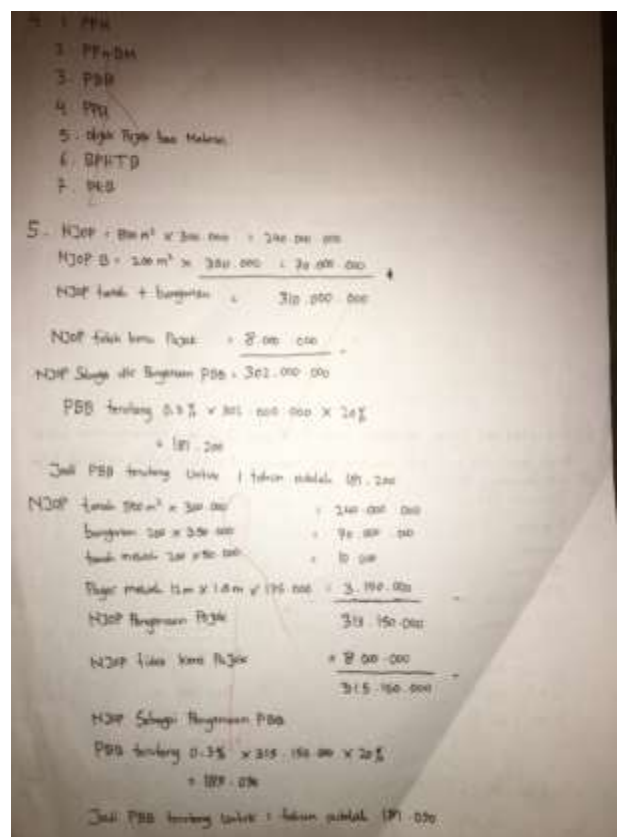 4. 1. PPN
2. PPnBM
3. PBB
4. PPH
5. objek Pajak bea Materai
6. BPHTB
7. PKB
5. NJOP = 800 m² x 300.000 = 240.000.000
NJOP B = 200 m² x 350.000 = 70.000.000
+
NJOP tanah + bangunan = 310.000.000
NJOP tidak kena Pajak = 8.000.000
-
NJOP Sebagai dsr Pengenaan PBB = 302.000.000
PBB terutang 0.3% x 302.000.000 x 20%
= 181.200
Jadi PBB terutang untuk 1 tahun adalah 181.200
NJOP tanah 800 m² x 300.000 = 240.000.000
bangunan 200 x 350.000 = 70.000.000
taman mewah 200 x 50.000 = 10.000
Pagar mewah 12m x 1.8m x 175.000 = 3.190.000
-
NJOP Pengenaan Pajak 319.150.000
NJOP tidak kena Pajak = 8.000.000
-
315.150.000
NJOP Sebagai Pengenaan PBB
PBB terutang 0.3% x 315.150.00 x 20%
= 189.090
Jadi PBB terutang untuk 1 tahun adalah 189.090